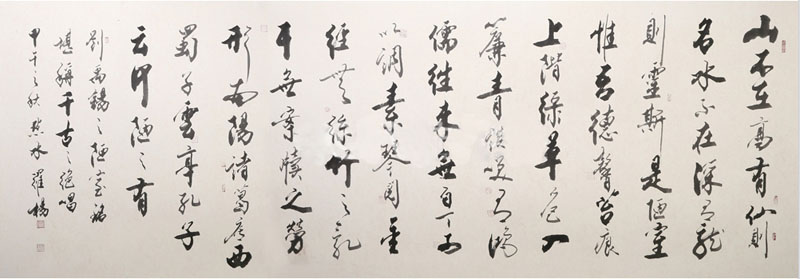 山不在高有仙則
名水不在深有龍
則靈斯是陋室
惟吾德馨苔痕
上階綠草色入
簾青談笑有鴻
儒往來無白丁可
以調素琴閱金
經無絲竹之亂
耳無案牘之勞
形南陽諸葛廬西
蜀子雲亭孔子
云何陋之有
劉禹錫之陋室銘
堪稱千古之絕唱
甲午之秋 水羅楊